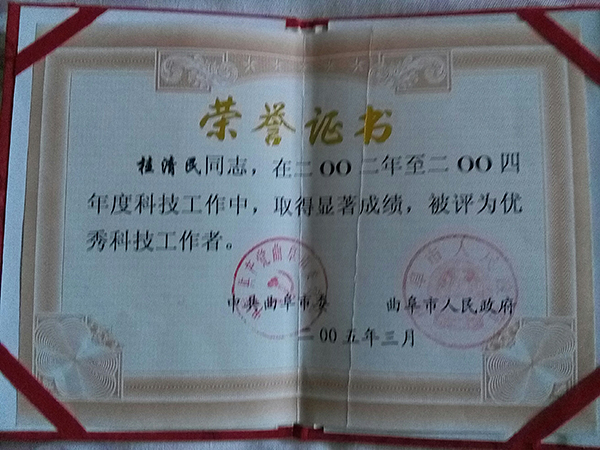 荣誉证书
桂清民同志，在二OO二年至二OO四
年度科技工作中，取得显著成绩，被评为优
秀科技工作者。
中共曲阜市委 曲阜市人民政府
二OO五年三月